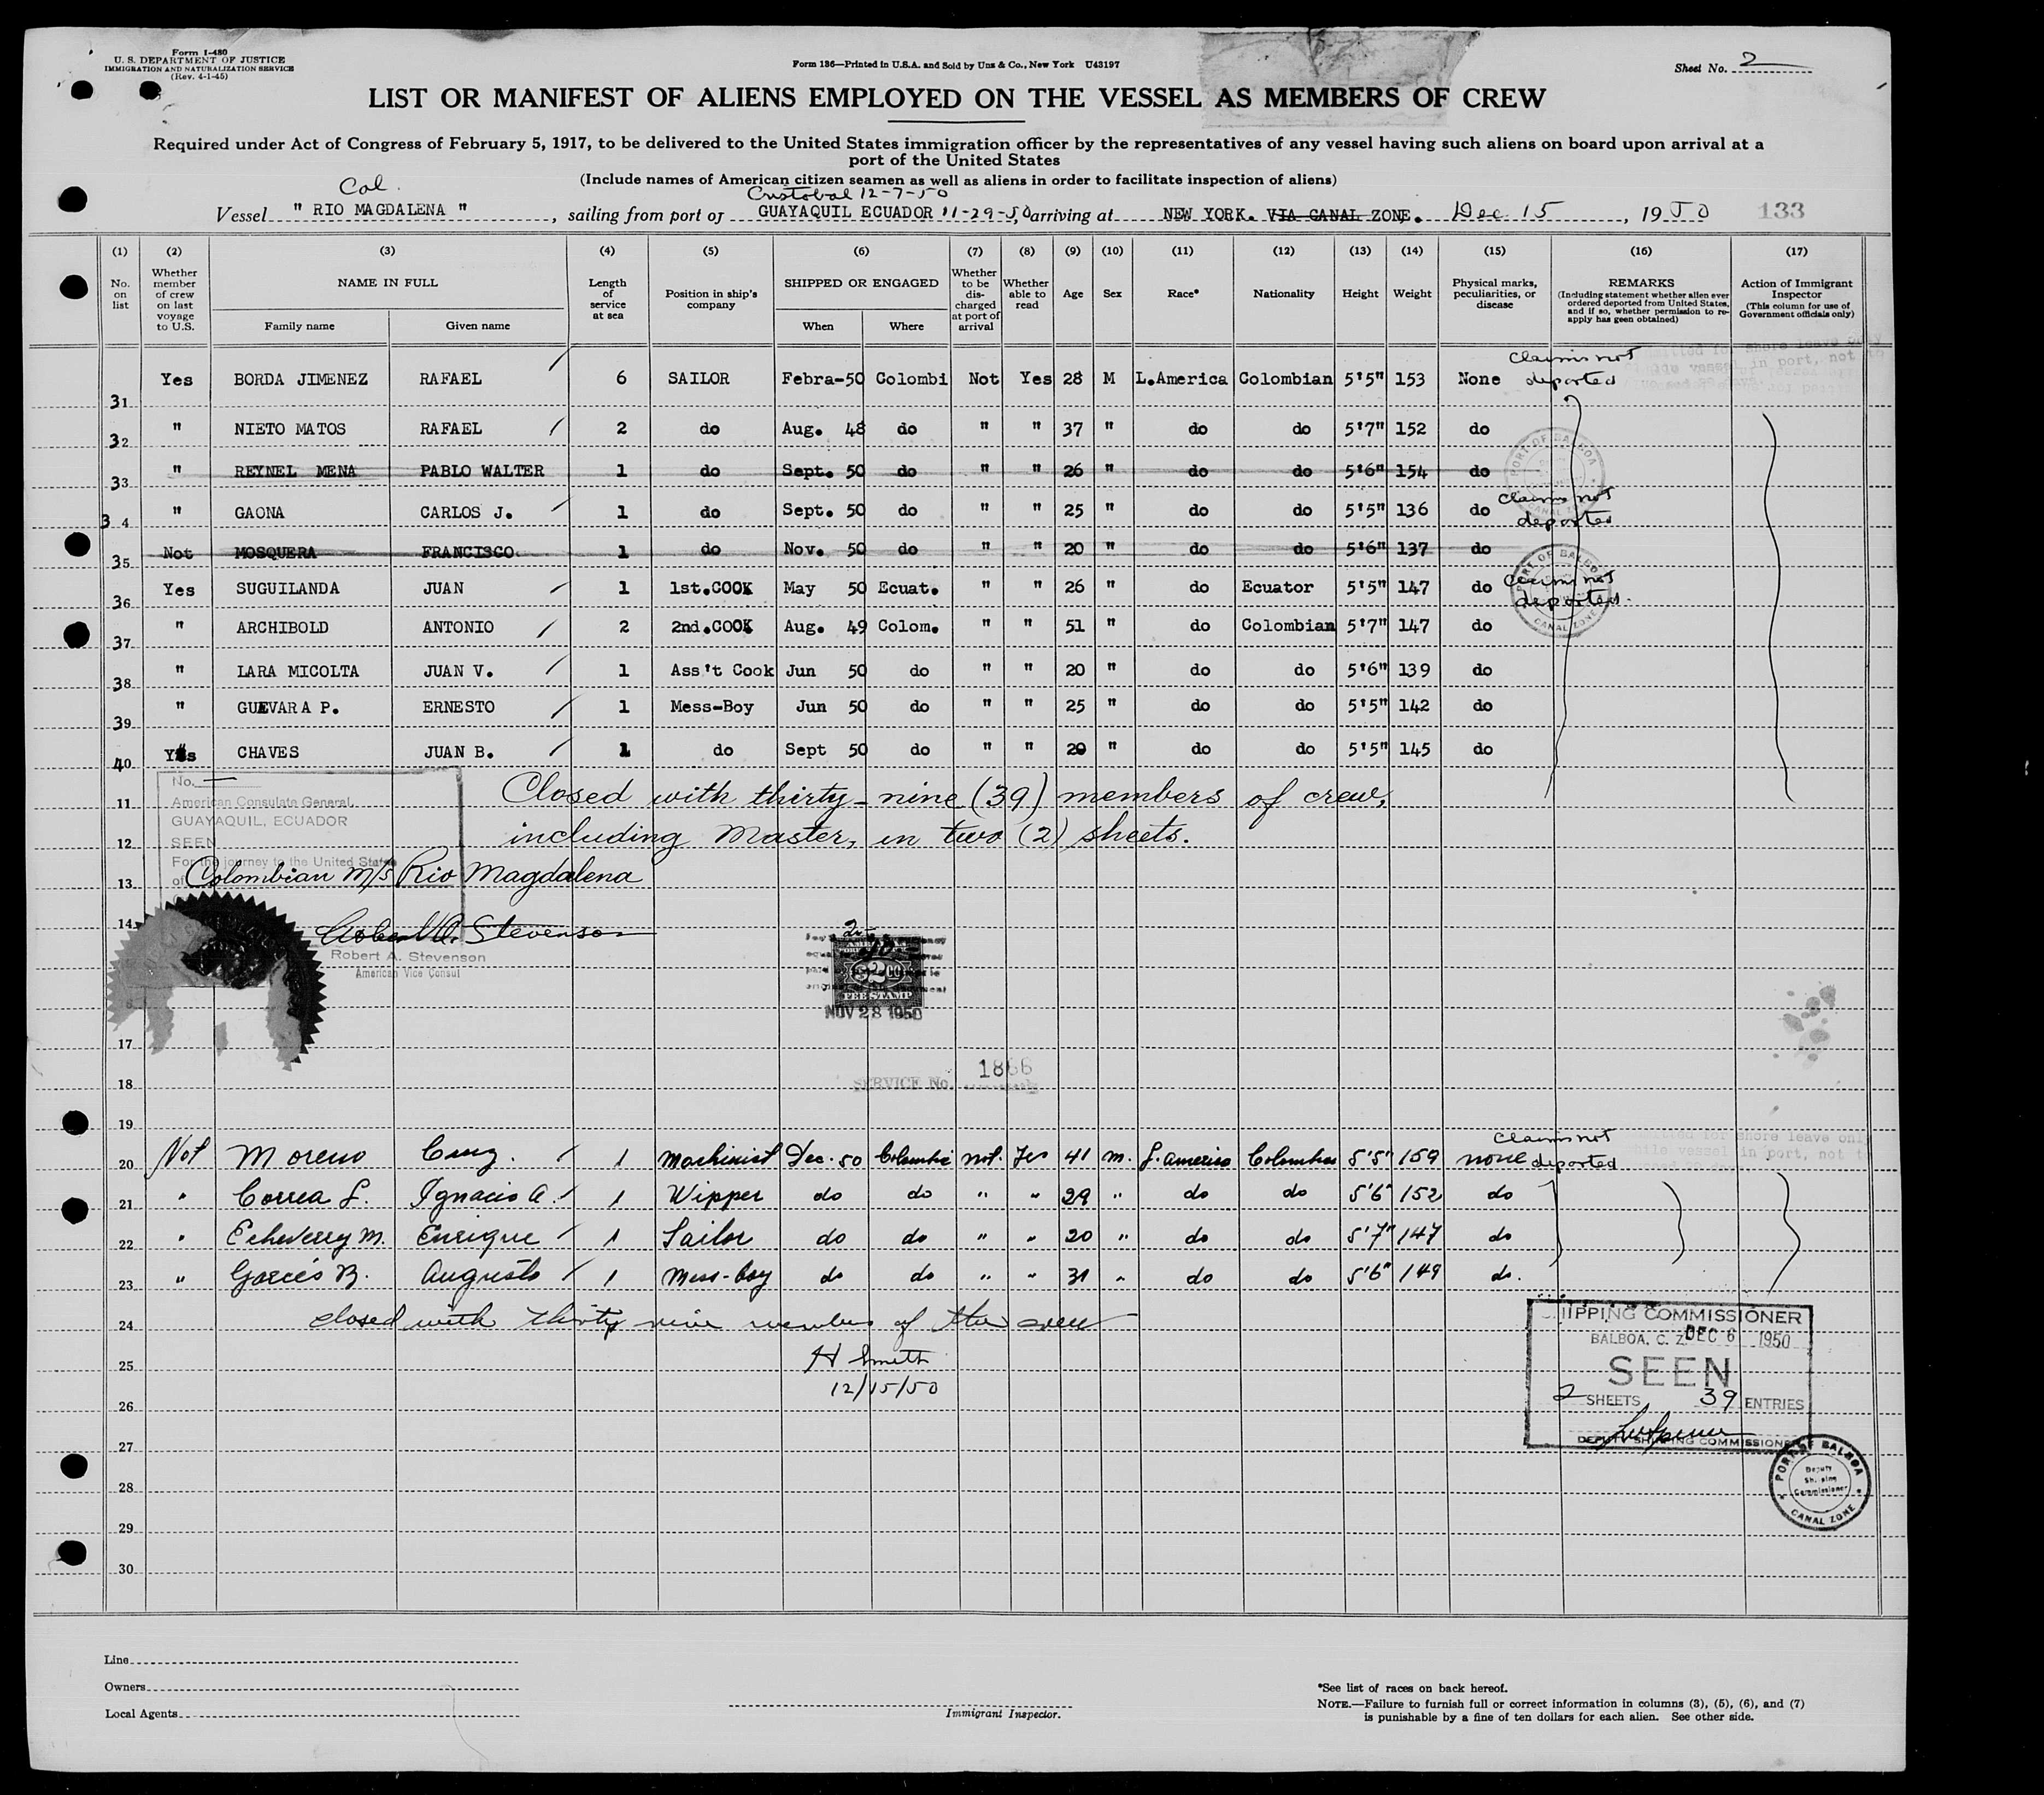 Form I-480
U. S. DEPARTMENT OF JUSTICE
IMMIGRATION AND NATURALIZATION SERVICE
(Rev. 4-1-45)
Form 136—Printed in U.S.A. and Sold by Unz & Co., New York U43197
Sheet No. 2
LIST OR MANIFEST OF ALIENS EMPLOYED ON THE VESSEL AS MEMBERS OF CREW
Required under Act of Congress of February 5, 1917, to be delivered to the United States immigration officer by the representatives of any vessel having such aliens on board upon arrival at a
port of the United States
(Include names of American citizen seamen as well as aliens in order to facilitate inspection of aliens)
Col. Cristobal 12-7-50
Vessel " RIO MAGDALENA ", sailing from port of GUAYAQUIL ECUADOR 11-29-50, arriving at NEW YORK. VIA CANAL ZONE. Dec 15, 1950 133
(1) (2) (3) (4) (5) (6) (7) (8) (9) (10) (11) (12) (13) (14) (15) (16) (17)
No. on list
Whether member of crew on last voyage to U.S.
NAME IN FULL
Family name Given name
Length of service at sea
Position in ship's company
SHIPPED OR ENGAGED
When Where
Whether to be discharged at port of arrival
Whether able to read
Age
Sex
Race*
Nationality
Height
Weight
Physical marks, peculiarities, or disease
REMARKS
(Including statement whether alien ever ordered deported from United States, and if so, whether permission to re-apply has geen obtained)
Action of Immigrant Inspector
(This column for use of Government officials only)
31 Yes BORDA JIMENEZ RAFAEL 6 SAILOR Febra-50 Colombi Not Yes 28 M L.America Colombian 5'5" 153 None Claims not deported
32 " NIETO MATOS RAFAEL 2 do Aug. 48 do " " 37 " do do 5'7" 152 do
33 " REYNEL MENA PABLO WALTER 1 do Sept. 50 do " " 26 " do do 5'6" 154 do
34 " GAONA CARLOS J. 1 do Sept. 50 do " " 25 " do do 5'5" 136 do Claims not deported
35 Not MOSQUERA FRANCISCO 1 do Nov. 50 do " " 20 " do do 5'6" 137 do
36 Yes SUGUILANDA JUAN 1 1st.COOK May 50 Ecuat. " " 26 " do Ecuator 5'5" 147 do Claims not deported.
37 " ARCHIBOLD ANTONIO 2 2nd.COOK Aug. 49 Colom. " " 51 " do Colombian 5'7" 147 do
38 " LARA MICOLTA JUAN V. 1 Ass't Cook Jun 50 do " " 20 " do do 5'6" 139 do
39 " GUEVARA P. ERNESTO 1 Mess-Boy Jun 50 do " " 25 " do do 5'5" 142 do
40 Yes CHAVES JUAN B. 1 do Sept 50 do " " 20 " do do 5'5" 145 do
No. —
American Consulate General,
GUAYAQUIL, ECUADOR
SEEN
For the journey to the United States
11 Closed with thirty-nine (39) members of crew,
12 including Master, in two (2) sheets.
13 Colombian M/S Rio Magdalena
14 Robert A. Stevenson
Robert A. Stevenson
American Vice Consul
FEE STAMP
NOV 28 1950
17
SERVICE No. 1866
18
19
20 Not Moreno Cruz. 1 Machinist Dec. 50 Colombia not. Yes 41 m. L. America Colombia 5'5" 159 none Claims not deported
21 " Correa L. Ignacio A. 1 Wipper do do " " 29 " do do 5'6" 152 do
22 " Echeverry M. Enrique 1 Sailor do do " " 20 " do do 5'7" 147 do
23 " Garcés B. Augusto 1 Mess-boy do do " " 31 " do do 5'6" 149 do.
24 closed with thirty nine members of the crew
25 H Smith
12/15/50
26
27
28
29
30
SHIPPING COMMISSIONER
BALBOA, C. Z. DEC 6 1950
SEEN
2 SHEETS 39 ENTRIES
DEPUTY SHIPPING COMMISSIONER
PORT OF BALBOA
Deputy
Shipping
Commissioner
CANAL ZONE
Line
Owners
Local Agents
Immigrant Inspector.
*See list of races on back hereof.
NOTE.—Failure to furnish full or correct information in columns (3), (5), (6), and (7)
is punishable by a fine of ten dollars for each alien. See other side.